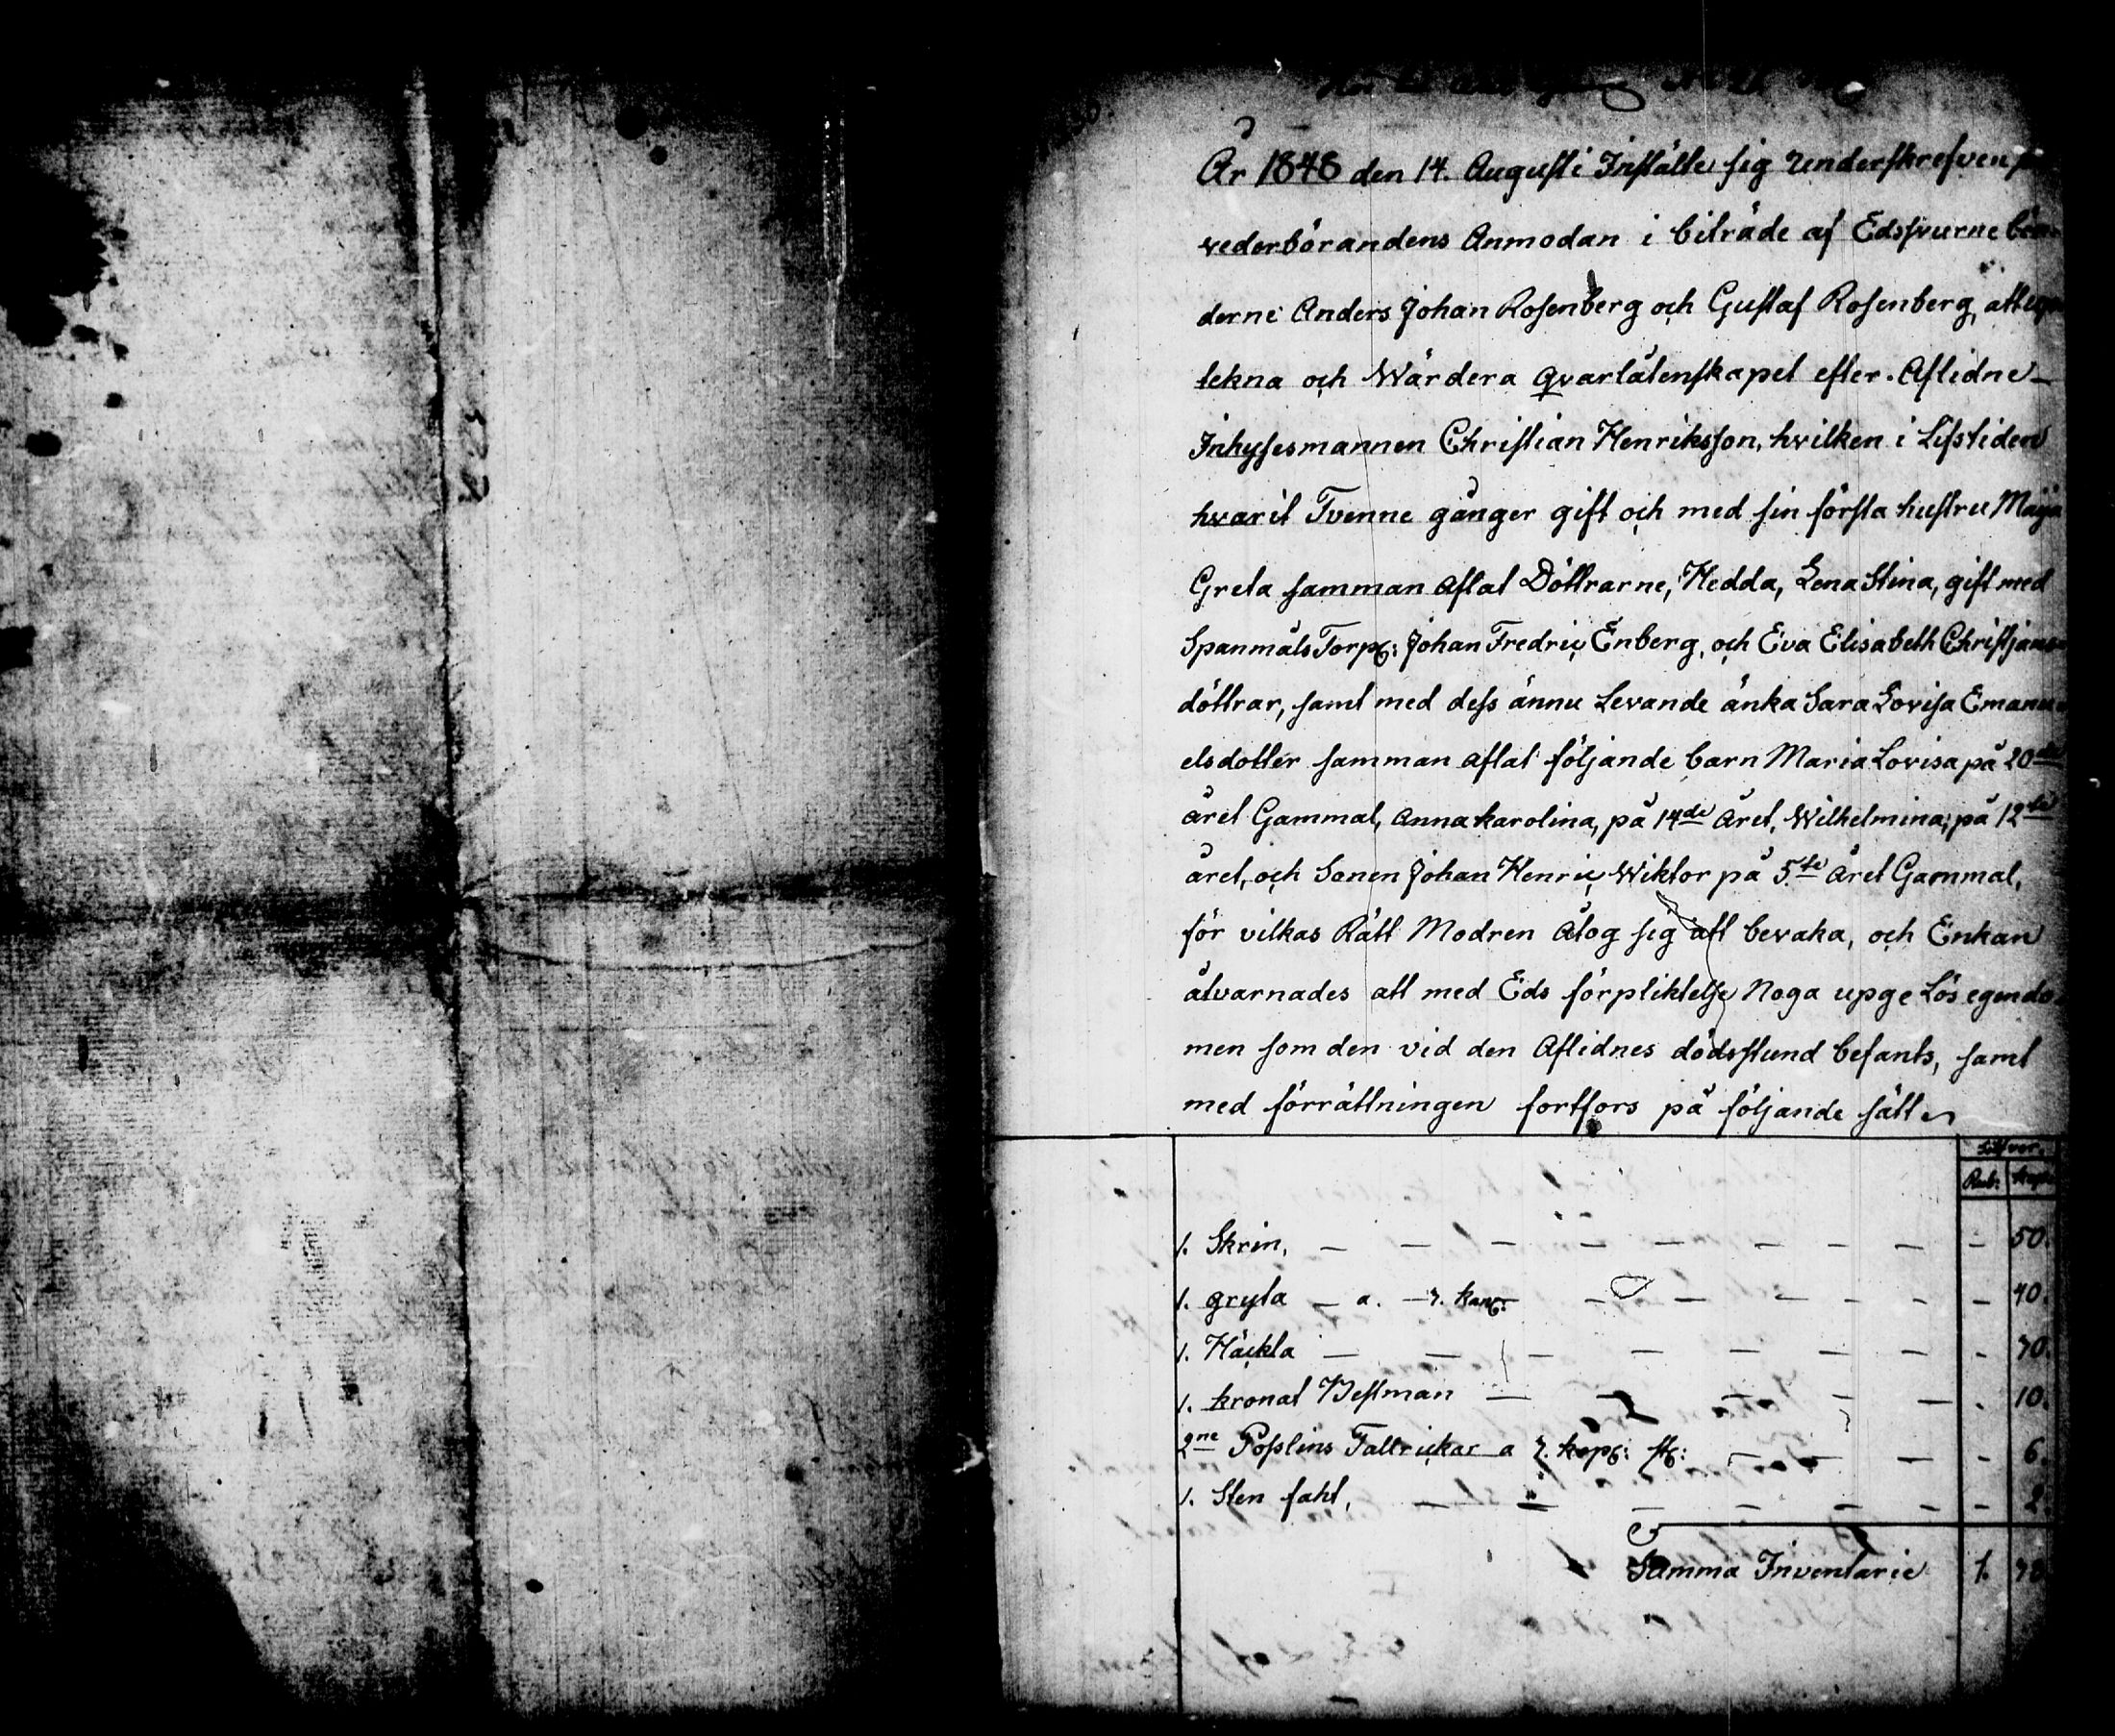 År 1848 den 14. Augusti Instälte sig Underskrefven
vederbörandens Anmodan i biträde af Edsvurne bön-
derne Anders Johan Rosenberg och Gustaf Rosenberg, att
tekna och Wärdera qvarlåtenskapet efter Aflidne
Inhysesmannen Christian Henriksson, hvilken i Lifstiden
hvarit Tvenne gånger gift och med sin första hustru Maja
Greta samman aflat Döttrarne, Hedda, Lena Stina, gift med
Spanmåls Torp: Johan Fredric Enberg, och Eva Elisabeth Christjans
döttrar, samt med dess ännu Levande änka Sara Lovisa Emanu
elsdotter samman aflat följande barn Maria Lovisa på 20de
året Gammal, Anna karolina, på 14de Året, Wilhelmina, på 12te
året, och Sonen Johan Henric Wiktor på 5.te Året Gammal,
för vilkas Rätt Modren Åtog sig att bevaka, och Enkan
åtvarnades att med Eds förpliktelse Noga upge Lös egendo
men som den vid den Aflidnes dödsstund befants, samt
med förrättningen fortfors på följande sätt
Silfver.
Rub: kop:
1. Skrin, — — — — — — — — - 50.
1. gryta — a. — kan: — — — — — - 40.
1. Häckla — — — — — — — - 70.
1. kronat Bestman — — — — — . 10.
2ne Poslins Tallrickar a 3. kop: st: — — — - 6.
1. Sten faht, — — — — — — - 2.
Summa Inventarie 1. 78